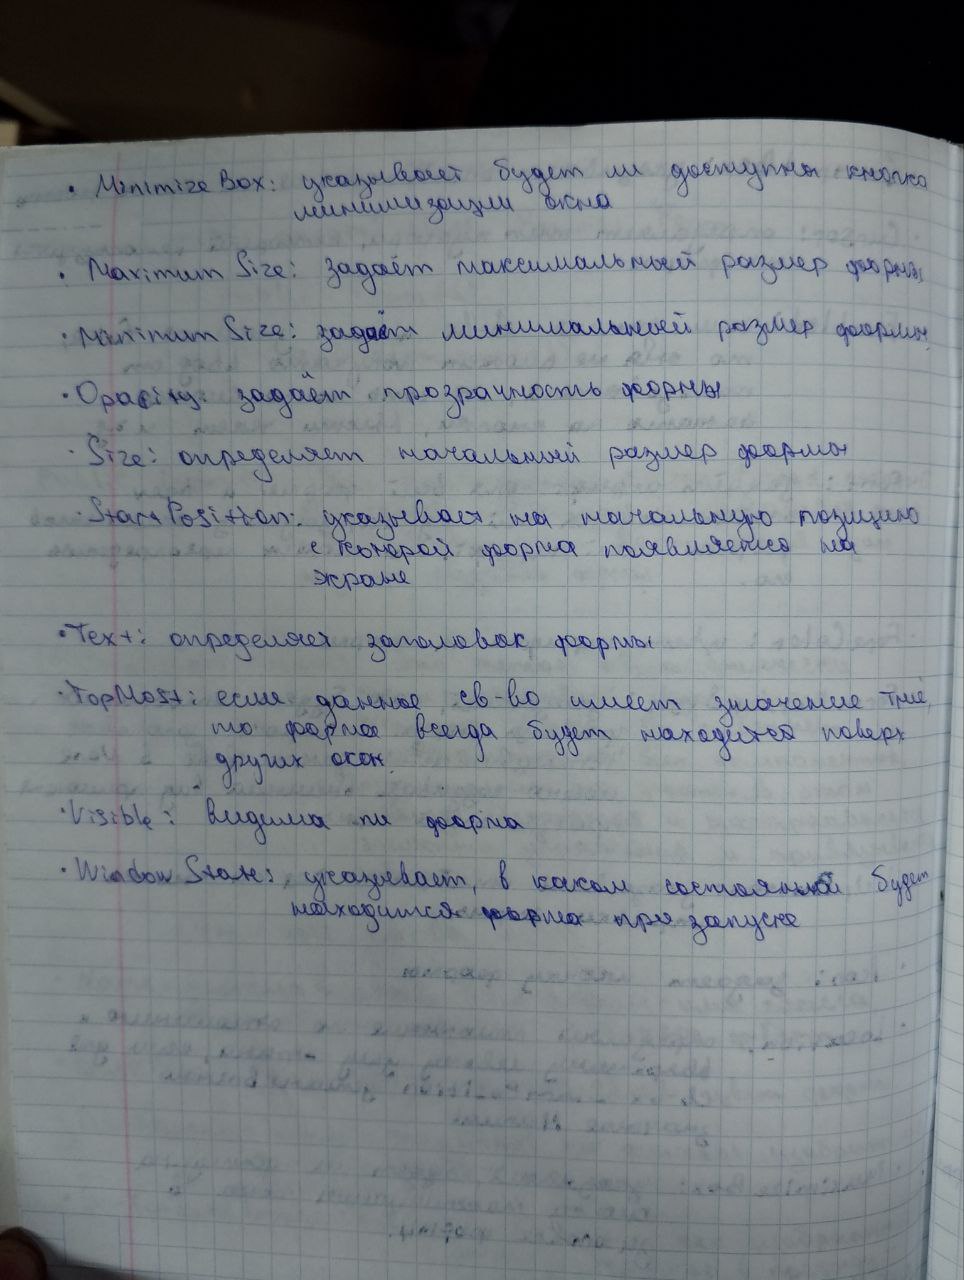 · Minimize Box: указывает будет ли доступна кнопка
минимизации окна
· Maximum Size: задаёт максимальный размер формы
· Minimum Size: задаёт минимальный размер формы
· Opacity: задаёт прозрачность формы
· Size: определяет начальный размер формы
· Start Position: указывает на начальную позицию
с которой форма появляется на
экране
· Text: определяет заголовок формы
· TopMost: если данное св-во имеет значение true,
то форма всегда будет находится поверх
других окон.
· Visible: видима ли форма
· Window State: указывает, в каком состоянии будет
находится форма при запуске